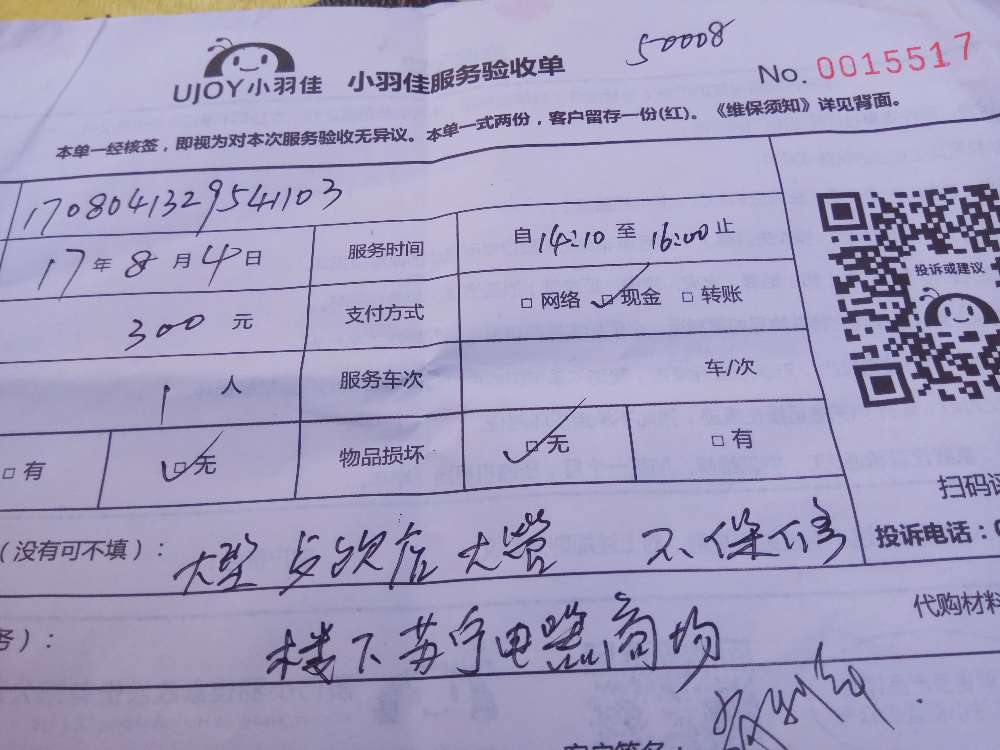 50008
UJOY小羽佳 小羽佳服务验收单
No. 0015517
本单一经核签，即视为对本次服务验收无异议。本单一式两份，客户留存一份(红)。《维保须知》详见背面。
1708041329541103
17年8月4日 服务时间 自14:10至16:00止
投诉或建议
300元 支付方式 □网络 □现金 □转账
1人 服务车次 车/次
□有 □无 物品损坏 □无 □有
扫码
（没有可不填）： 大 不保修
投诉电话：
代购材料
务）： 楼下苏宁电器商场
客户签名：